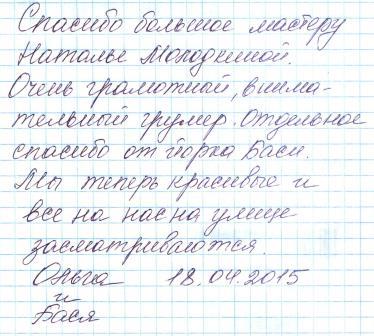 Спасибо большое мастеру
Наталье Молодкиной.
Очень грамотный, внима-
тельный грумер. Отдельное
спасибо от йорка Баси.
Мы теперь красивые и
все на нас на улице
засматриваются.
Ольга 18.04.2015
и
Бася